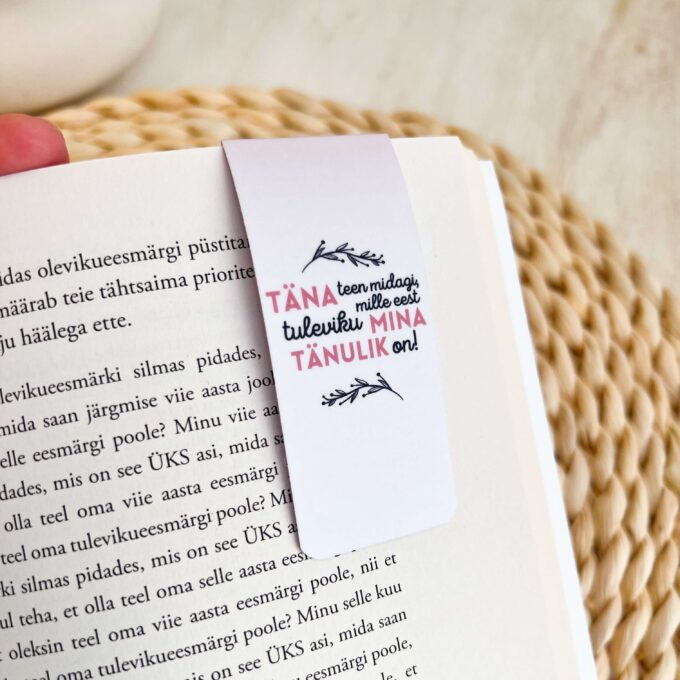 olevikueesmärgi püstita
määrab teie tähtsaima priorite
häälega ette.
TÄNA teen midagi,
mille eest
tuleviku MINA
TÄNULIK on!
silmas pidades,
mida saan järgmise viie aasta
selle eesmärgi poole? Minu viie
mis on see ÜKS asi, mida
olla teel oma viie aasta eesmärgi
teel oma tulevikueesmärgi poole?
silmas pidades, mis on see ÜKS
teha, et olla teel oma selle aasta eesmärgi
oleksin teel oma viie aasta eesmärgi poole, nii et
teel oma tulevikueesmärgi poole? Minu selle kuu
mis on see ÜKS asi, mida saan
eesmärgi poole,
et